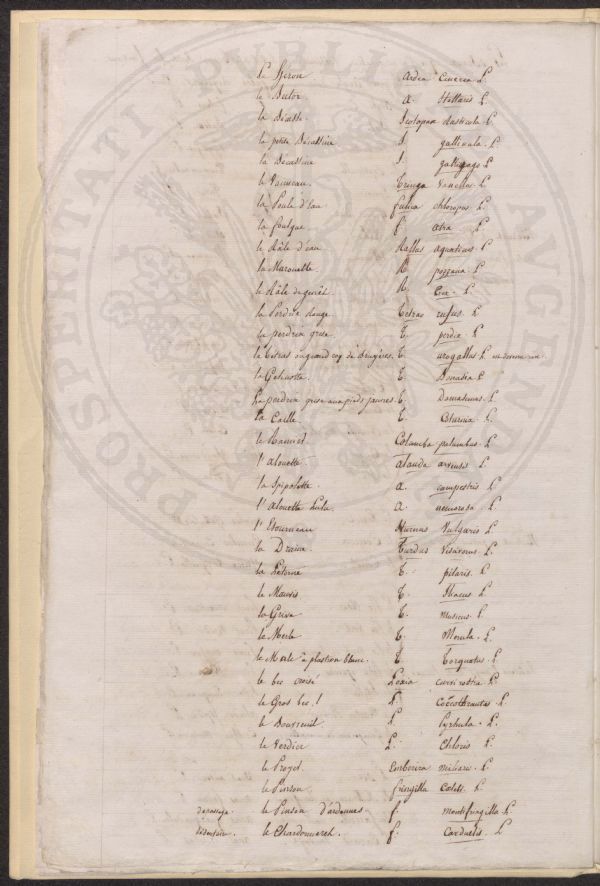 Le Héron Ardea Cinerea L.
le Butor A. Stellaris L.
la Bécasse Scolopax Rusticola L.
la petite Bécassine S. gallinula. L.
la Becassine S. gallinago L
le Vanneau. Tringa Vanellus. L.
la Poule d'eau fulica chloropus. L.
la foulque f. atra L.
le Râle d'eau Rallus aquaticus. L
la Marouette. R. porzana. L.
le Râle de genêt. R. Crex. L.
la Perdrix Rouge Tetrao rufus. L.
la perdrix grise T. perdix L.
le Tetras ou grand coq de bruyères. T. urogallus L.
la Gelinotte. T. Bonasia L
La perdrix grise aux pieds jaunes. T. Damascenus. L.
La Caille T. Coturnix L.
le Ramier Columba palumbus. L.
l'alouette. alauda arvensis. L.
la Spipolette. a. campestris L.
l'alouette Lulu. a. nemorosa. L.
l'Etourneau Sturnus Vulgaris L.
la Draine. Turdus Viscivorus. L.
la Litorne T. pilaris. L.
le Mauvis T. Iliacus L
la Grive T. Musicus L.
le Merle T. Merula. L.
le Merle à plastron blanc. T. Torquatus. L.
le bec croisé Loxia curvirostra L.
le Gros bec. L. Coccothraustes L.
le Bouvreuil L. Pyrhula. L.
le Verdier L. Chloris L.
le Proyer. Emberiza miliaria L.
le Pinson. fringilla Caelebs. L.
de passage. le Pinson d'ardennes f montifringilla L.
sédentaire. le Chardonneret. f. Carduelis. L